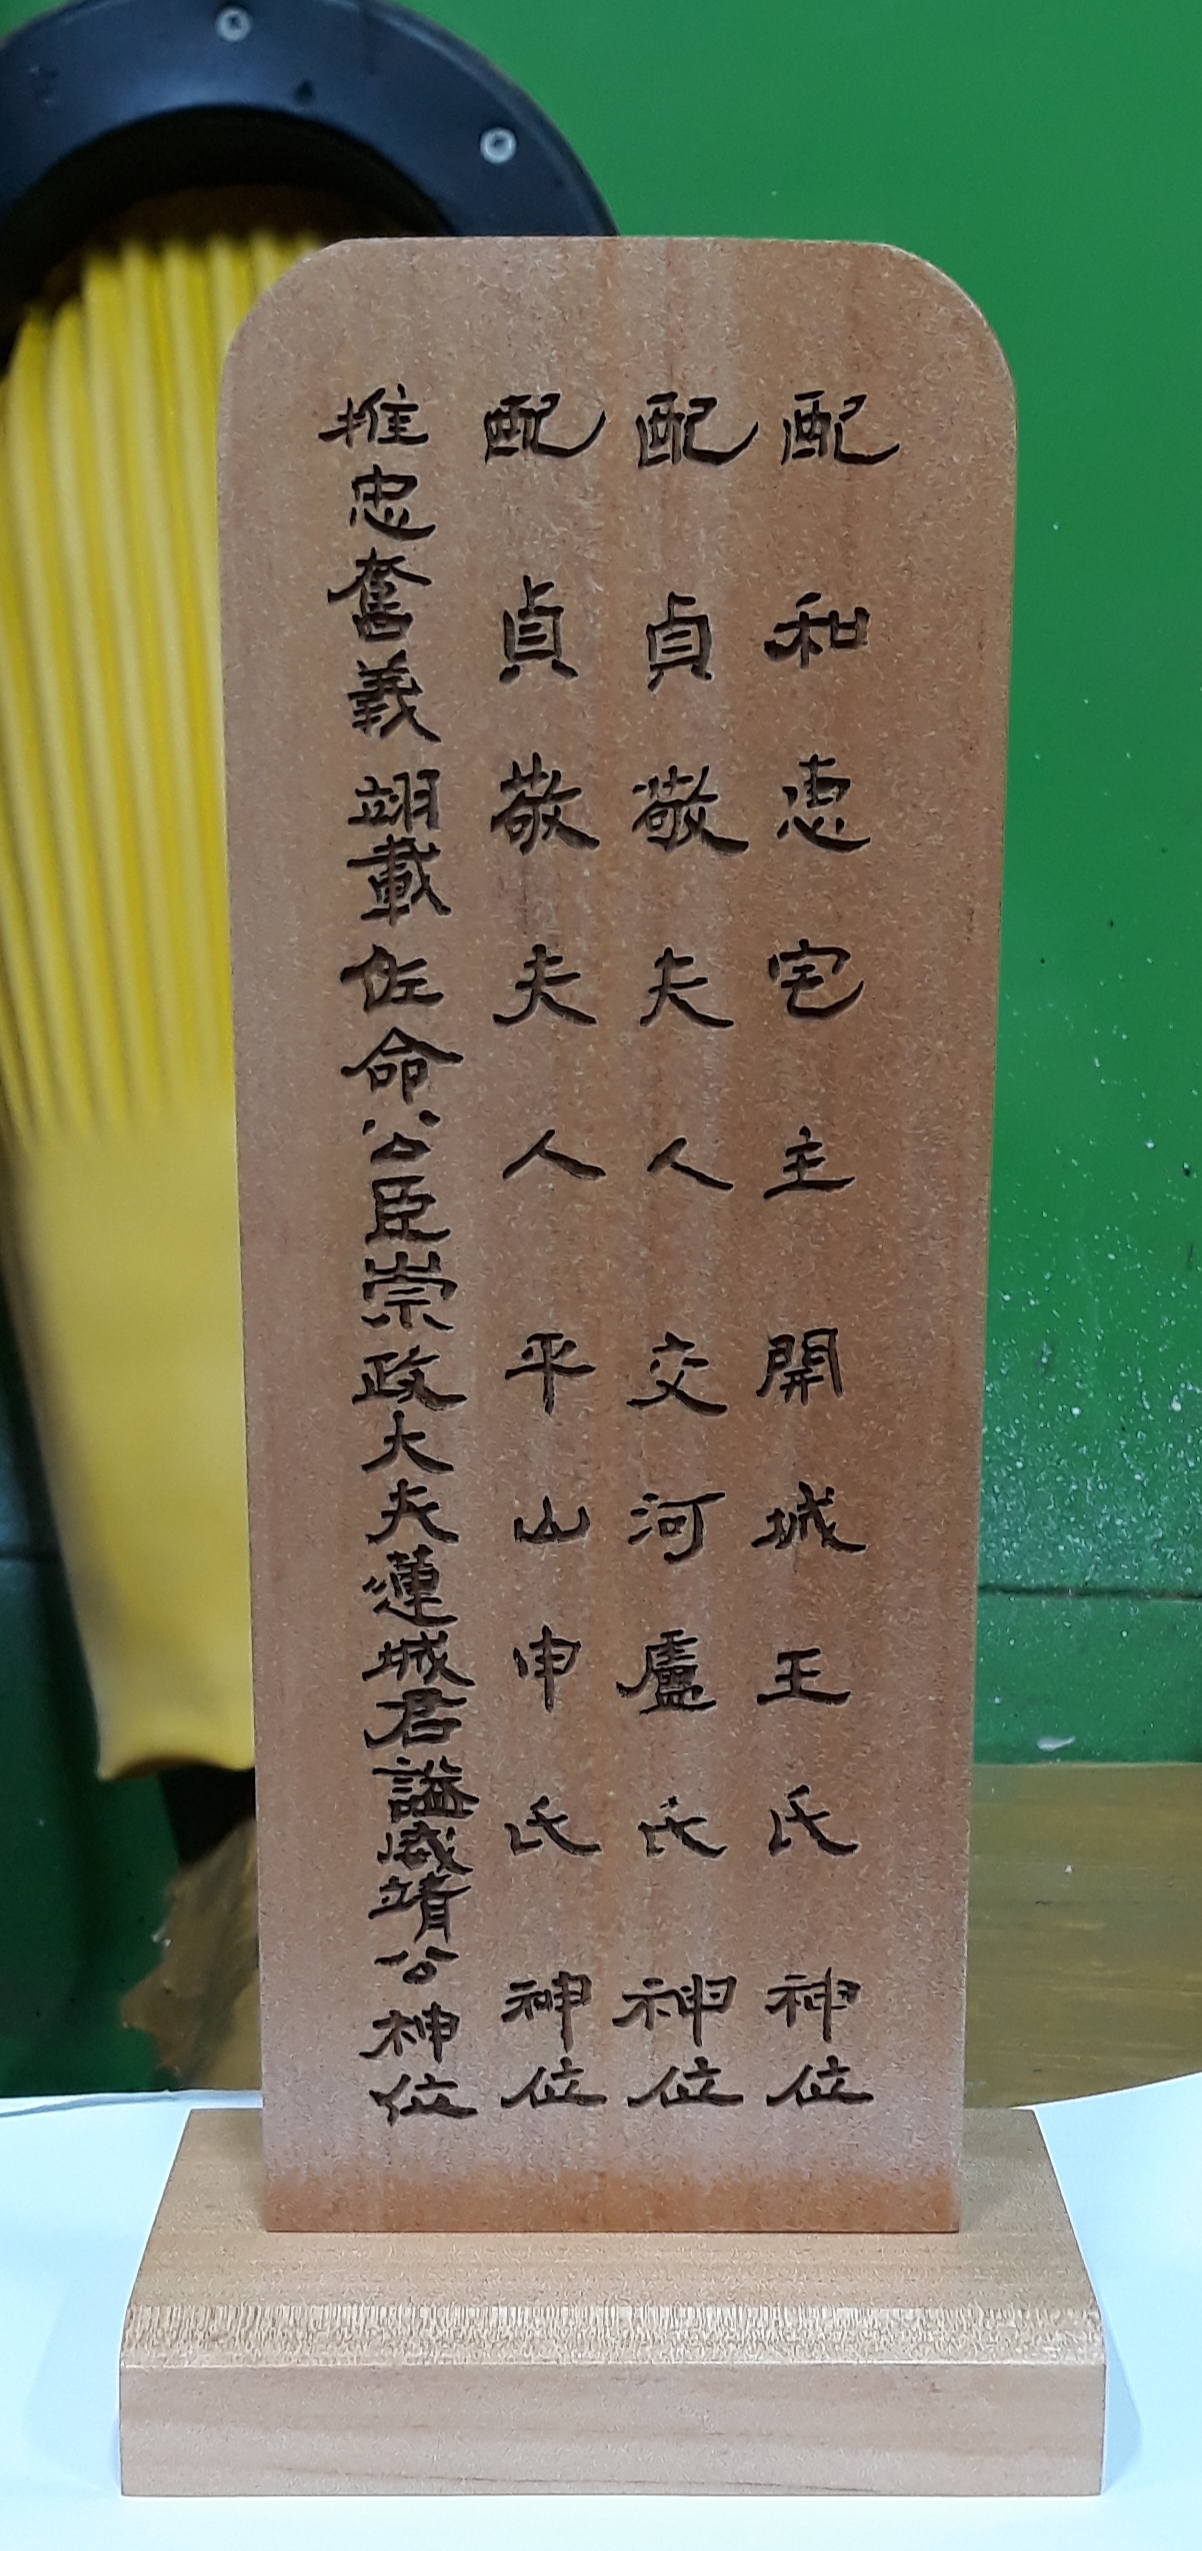 推忠奮義翊載佐命公臣崇政大夫蓮城君謚威靖公神位
配貞敬夫人平山申氏神位
配貞敬夫人交河盧氏神位
配和惠宅主開城王氏神位